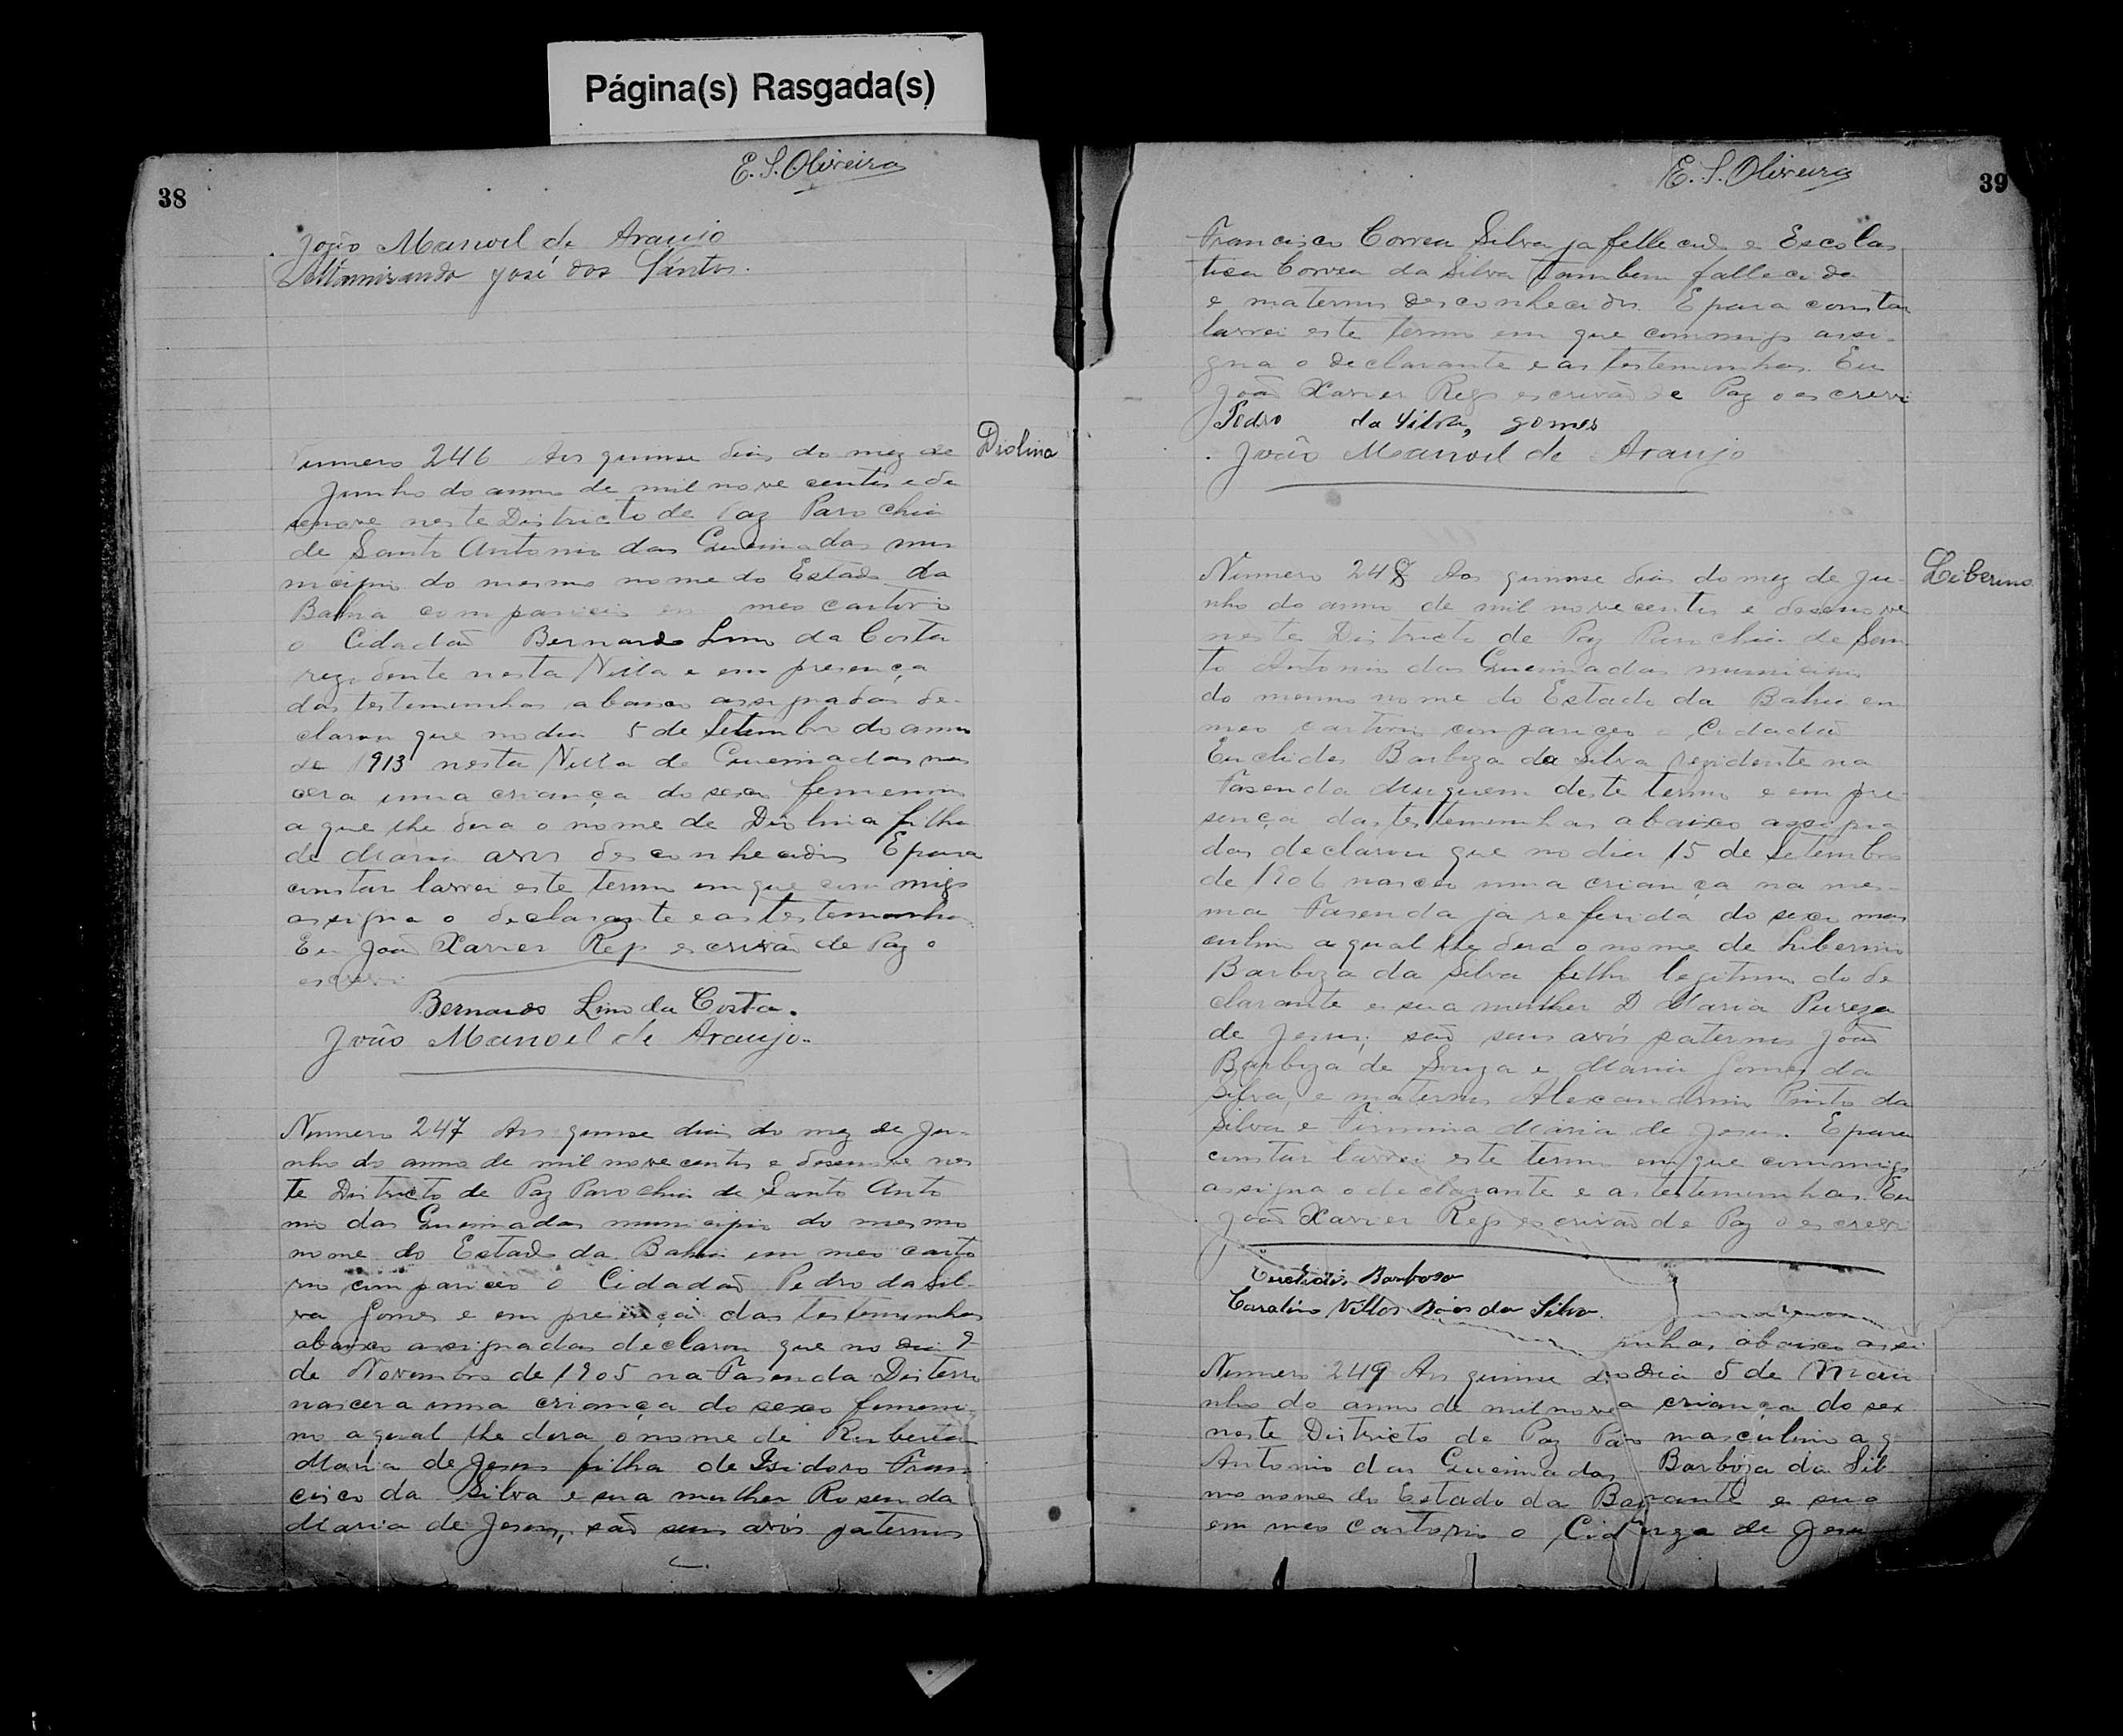 Página(s) Rasgada(s)
E. S. Oliveira
38
João Manoel de Araujo
José dos Santos.
Numero 246 Aos quinse dias do mez de
Diolina
Junho do anno de mil nove centos e de
senove neste Districto de Paz Parochia
de Santo Antonio das Queimadas mu
nicipio do mesmo nome do Estado da
Bahia compareceo em meo cartorio
o Cidadão Bernardo Lino da Costa
rezidente nesta Villa e em presença
das testemunhas abaixo assignadas de-
clarou que no dia 5 de Setembro do anno
de 1913 nesta Villa de Queimadas nas
cera uma criança do sexo femenino
a que lhe dera o nome de Diolina filha
de Maria avós desconhecidos E para
constar lavrei este termo em que commigo
assigna o declarante e as testemunhas.
Eu João Xavier Rego escrivão de Paz o
escrevi
Bernardo Lino da Costa.
João Manoel de Araujo.
Numero 247 Aos quinse dias do mez de Ju-
nho do anno de mil nove centos e desenove nes
te Districto de Paz Parochia de Santo Anto
nio das Queimadas municipio do mesmo
nome do Estado da Bahia em meo carto
rio compareceo o Cidadão Pedro da Sil-
va Gomes e em presença das testemunhas
abaixo assignadas declarou que no dia 9
de Novembro de 1905 na Fasenda
nascera uma criança do sexo femeni-
no a qual lhe dera o nome de
Maria de Jesus filha de Isidoro Fran-
cisco da Silva e sua mulher Rosenda
Maria de Jesus, são seus avós paternos
E. S. Oliveira
39
Francisco Correa Silva ja fallecido e Escolas
tica Correa da Silva tambem fallecida
e maternos desconhecidos. E para constar
lavrei este termo em que commigo assi-
gna o declarante e as testemunhas. Eu
João Xavier Rego escrivão de Paz o escrevi
Pedro da Silva, gomes
João Manoel de Araujo
Numero 248 Aos quinse dias do mez de Ju-
Liberino
nho do anno de mil nove centos e desenove
neste Districto de Paz Parochia de San
to Antonio das Queimadas municipio
do mesmo nome do Estado da Bahia em
meo cartorio compareceo o Cidadão
Euclides Barboza da Silva rezidente na
Fasenda deste termo e em pre-
sença das testemunhas abaixo assigna
das declarou que no dia 15 de Setembro
de 1906 nasceu uma criança na mes-
ma Fasenda ja referida do sexo mas
culino a qual lhe dera o nome de Liberino
Barboza da Silva filho legitimo do de
clarante e sua mulher D Maria Pureza
de Jesus; são seus avós paternos João
Barboza de Souza e Maria Gomes da
Silva, e maternos Alexandrino Pinto da
Silva e Firmina Maria de Jesus. E para
constar lavrei este termo em que commigo
assigna o declarante e as testemunhas. Eu
João Xavier Rego escrivão de Paz o escrevi
Euclides Barbosa
Villas Bôas da Silva.
nhas abaixo assi
Numero 249 Aos quinse no dia 5 de Maio
nho do anno de mil nove a criança do sex
neste Districto de Paz Par masculino a q
Antonio das Queimadas Barboza da Sil
mo nome do Estado da Ba rante e sua
em meo cartorio o Cid reza de Jesu